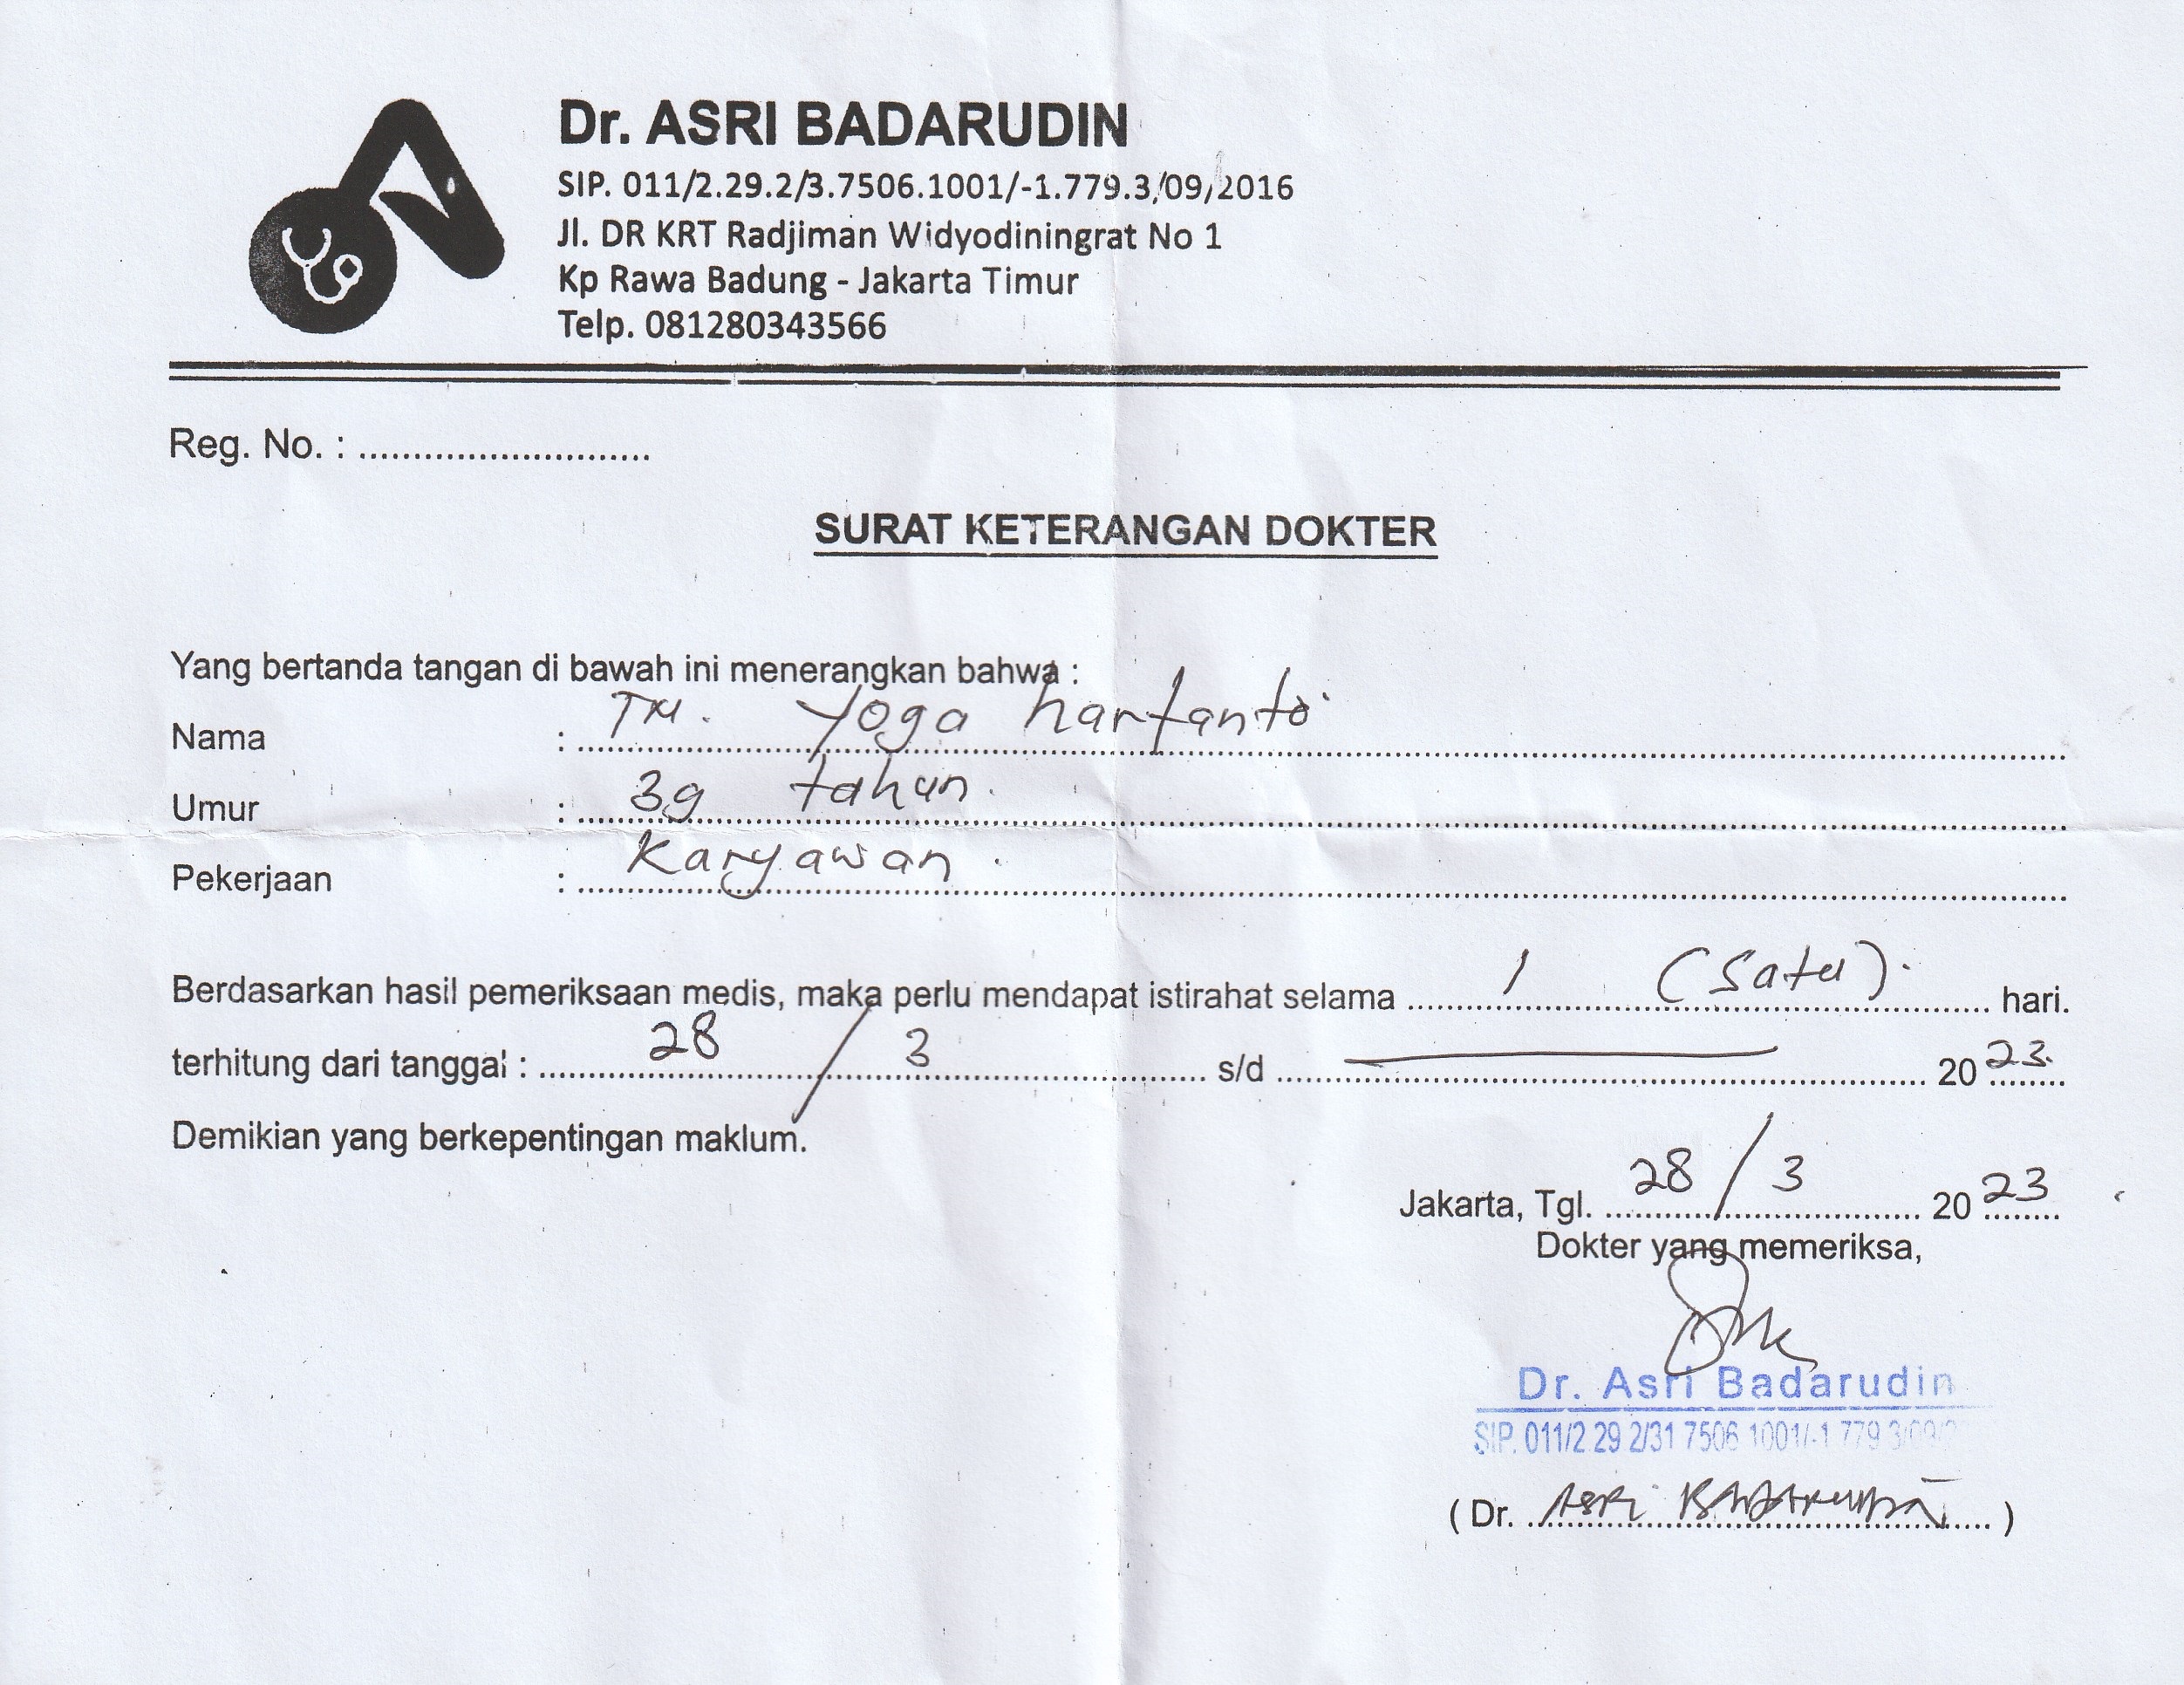 Dr. ASRI BADARUDIN
SIP. 011/2.29.2/3.7506.1001/-1.779.3/09/2016
Jl. DR KRT Radjiman Widyodiningrat No 1
Kp Rawa Badung - Jakarta Timur
Telp. 081280343566
Reg. No. : ...........................
SURAT KETERANGAN DOKTER
Yang bertanda tangan di bawah ini menerangkan bahwa :
Nama : Tn. Yoga hartanto
Umur : 39 tahun.
Pekerjaan : Karyawan.
Berdasarkan hasil pemeriksaan medis, maka perlu mendapat istirahat selama 1 (Satu). hari.
terhitung dari tanggal : 28 / 3 s/d — 20 23.
Demikian yang berkepentingan maklum.
Jakarta, Tgl. 28 / 3 20 23
Dokter yang memeriksa,
Dr. Asri Badarudin
SIP. 011/2 29 2/31 7506 1001/-1 779 3/09/2
( Dr. ASRI BADARUDIN )